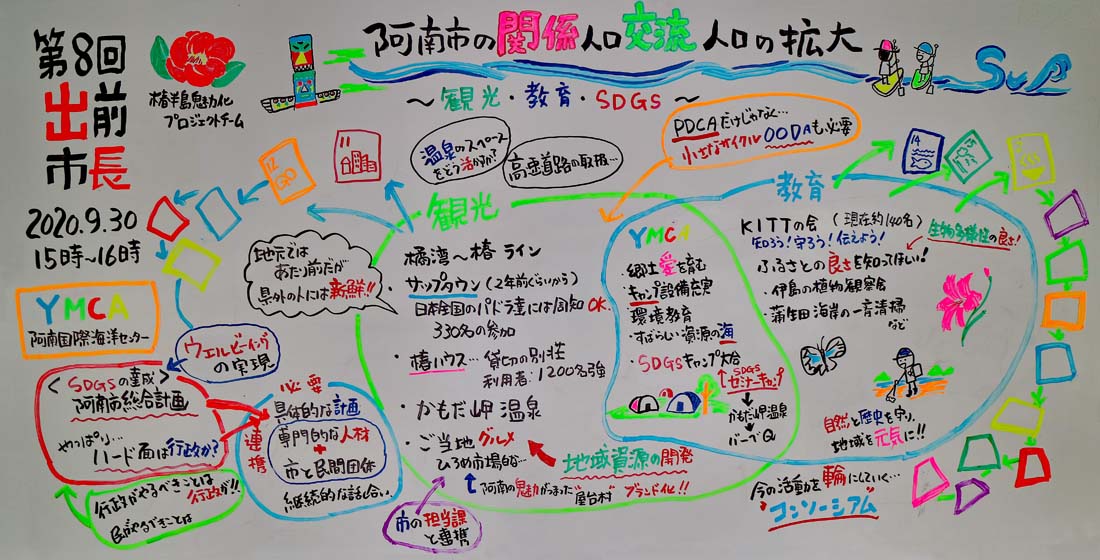 第8回
出前
市長
2020.9.30
15時~16時
YMCA
阿南国際海洋センター
椿半島魅力化
プロジェクトチーム
阿南市の関係人口交流人口の拡大
~観光・教育・SDGs~
SUP
PDCAだけじゃなく…
小さなサイクルOODAも必要
温泉のスペースを
どう活かすか?
高速道路の取扱…
12
GO
11
14
15
地元では
あたり前だが
県外の人には新鮮!!
観光
橘湾~椿ライン
サップタウン(2年前ぐらいから)
日本全国のパドラ達には周知OK.
330名の参加
・椿ハウス…貸切の別荘
利用者:1200名強
・かもだ岬温泉
・ご当地グルメ
ひろめ市場的な…
阿南の魅力がつまった"屋台村"
ブランド化!!
地域資源の開発
市の担当課
と連携
YMCA
・郷土愛を育む
・キャンプ設備充実
・環境教育
・すばらしい資源の海
・SDGsキャンプ大会
SDGs
セミナーキャンプ
かもだ岬温泉
バーベQ
教育
KITTの会(現在約140名)
知ろう!守ろう!伝えよう!
生物多様性の良さ!
ふるさとの良さを知ってほしい!
・伊島の植物観察会
・蒲生田海岸の一斉清掃
など
自然と歴史を守り、
地域を元気に!!
今の活動を輪にしていく…
"コンソーシアム"
ウェルビーイング
の実現
<SDGsの達成>
阿南市総合計画
やっぱり…
ハード面は行政か?
行政がやるべきことは
行政が!!
民がやるべきことは
必要
連携
具体的な計画
専門的な人材
+
市と民間団体
継続的な話し合い。